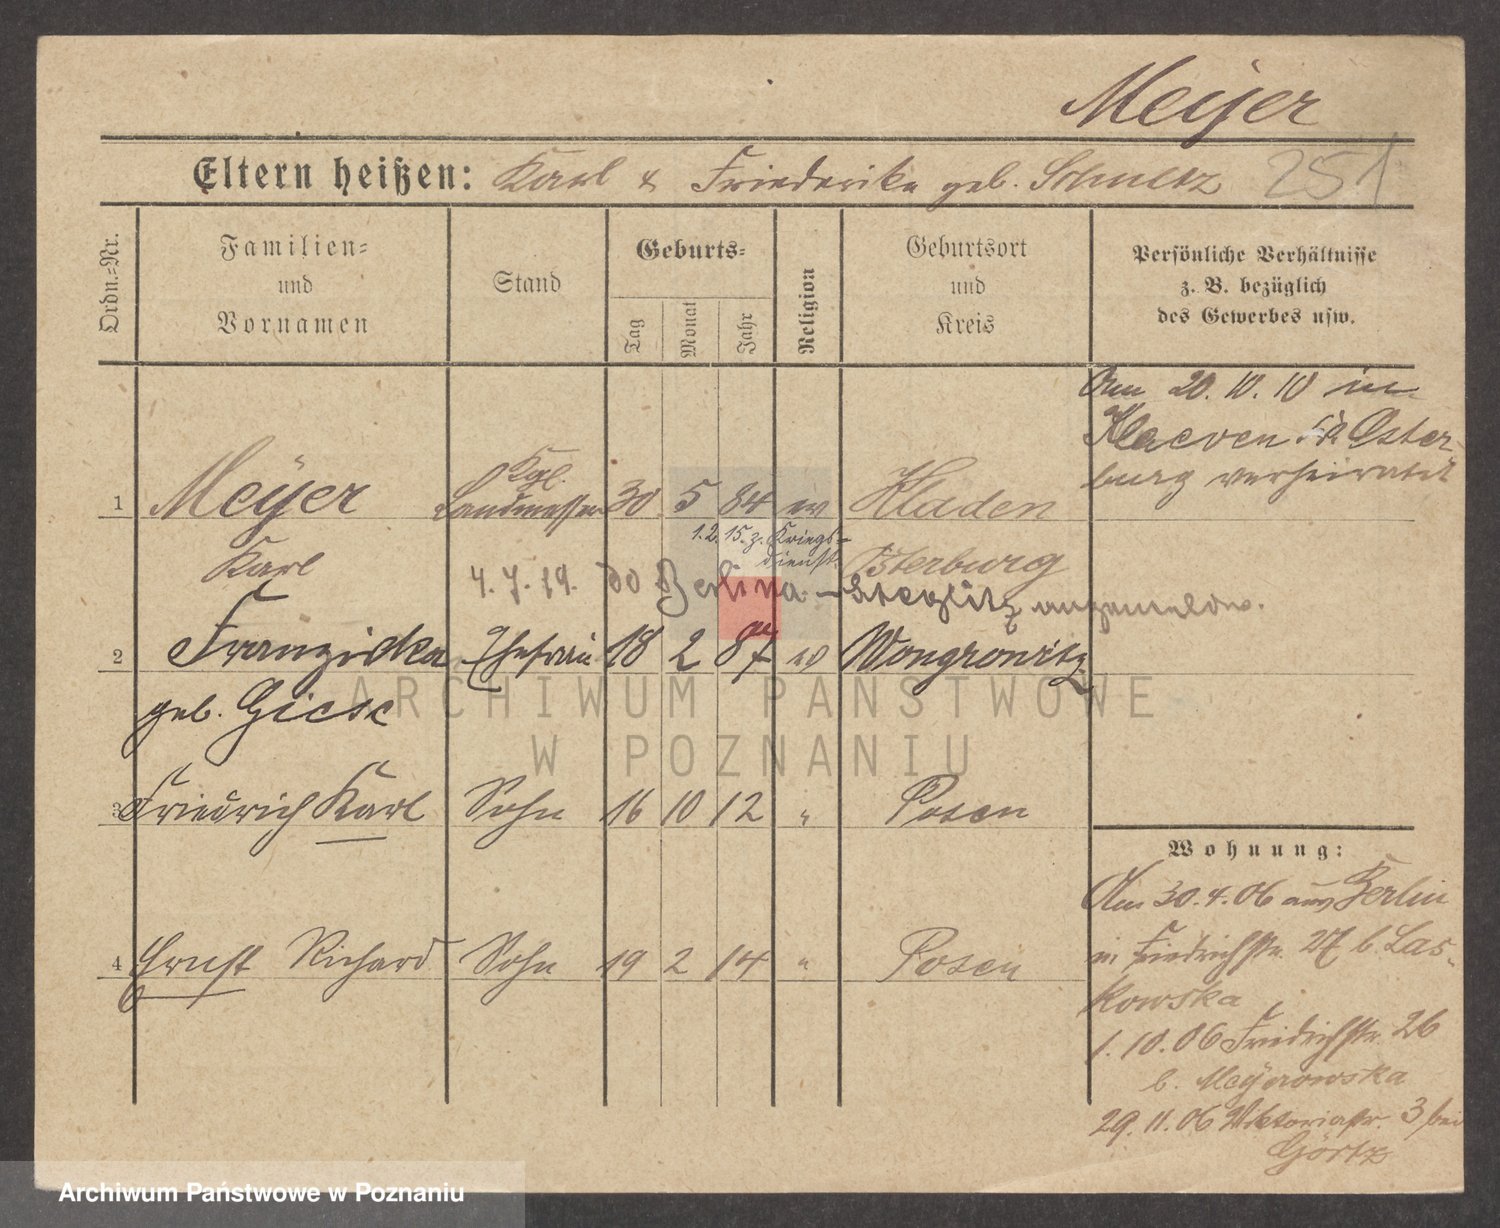 Meijer
Eltern heißen: Karl & Friederike geb. Schultz 251
Ordn.-Nr.
Familien-
und
Vornamen
Stand
Geburts-
Tag
Monat
Jahr
Religion
Geburtsort
und
Kreis
Persönliche Verhältnisse
z. B. bezüglich
des Gewerbes usw.
Am 20. 10. 10 in
Oster-
burg verheiratet
Kgl.
1 Meÿer Landmesser 30 5 84 ev Kladen
1. 2. 15. z. Kriegs-
dienst.
Karl Osterburg
4. 7. 19. Berlin - Steglitz
2 Franziska Ehefrau 18 2 87 ev Wongrowitz
geb. Giese
3 Friedrich Karl Sohn 16 10 12 " Posen
4 Ernst Richard Sohn 19 2 14 " Posen
Wohnung:
Am 30. 4. 06 aus Berlin
in Friedrichstr. 27 b. Las-
kowska
1. 10. 06 Friedrichstr. 26
b. Meÿerowska
29. 11. 06 Viktoriastr. 3 bei
Görtz
ARCHIWUM PAŃSTWOWE
W POZNANIU
Archiwum Państwowe w Poznaniu